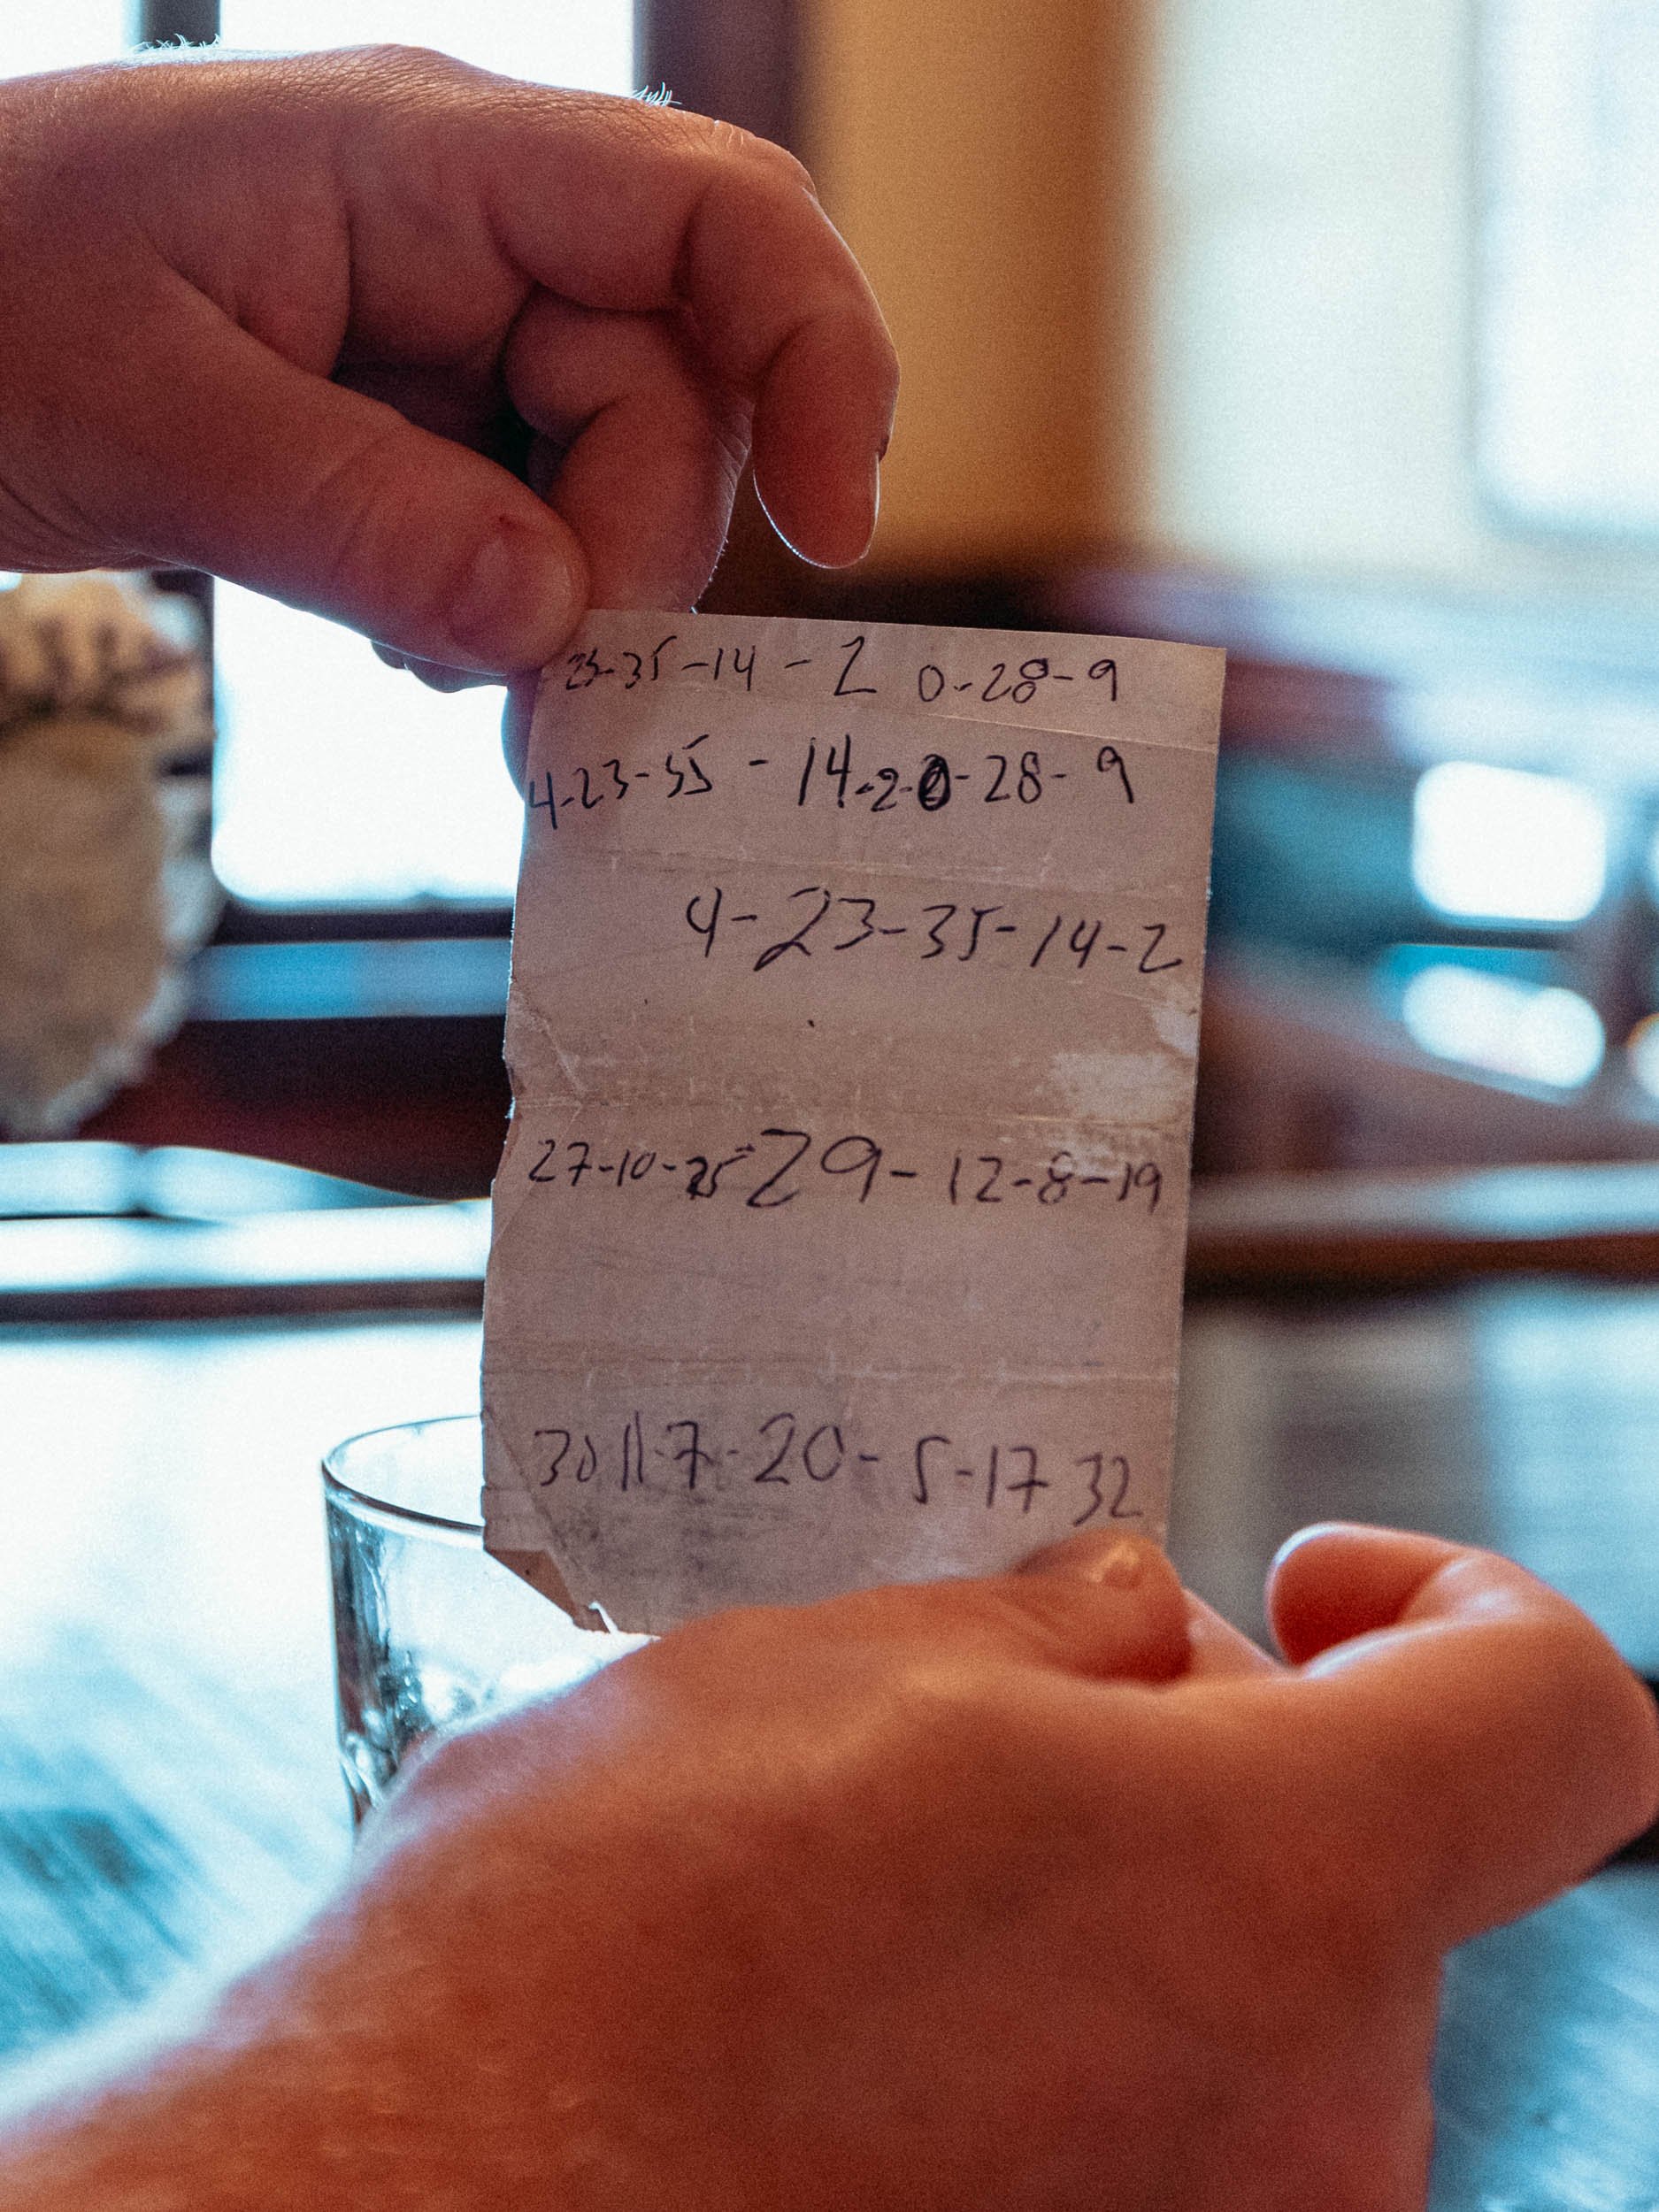 23-35-14-2 0-28-9
4-23-35-14-2-0-28-9
4-23-35-14-2
27-10-25-29-12-8-19
30 11-7-20-5-17 32